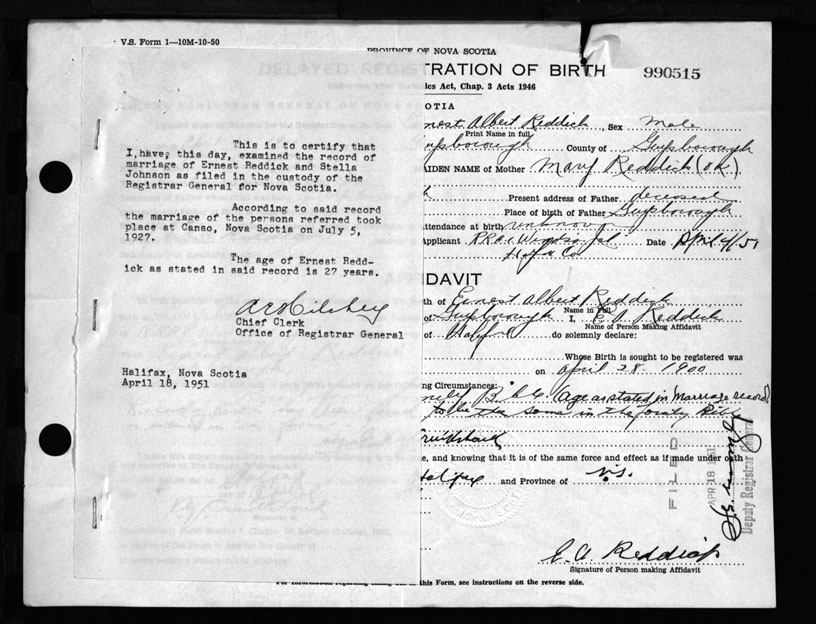 V.S. Form 1—10M-10-50
PROVINCE OF NOVA SCOTIA
DELAYED REGISTRATION OF BIRTH
990515
ics Act, Chap. 3 Acts 1946
This is to certify that
I have, this day, examined the record of
marriage of Ernest Reddick and Stella
Johnson as filed in the custody of the
Registrar General for Nova Scotia.
According to said record
the marriage of the persons referred took
place at Canso, Nova Scotia on July 5,
1927.
The age of Ernest Redd-
ick as stated in said record is 27 years.
Chief Clerk
Office of Registrar General
Halifax, Nova Scotia
April 18, 1951
COTIA
nest Albert Reddick, Sex Male
Print Name in full
uysborough County of Guysborough
AIDEN NAME of Mother Mary Reddick (OK)
Present address of Father deceased
Place of birth of Father Guysborough
ttendance at birth unknown
Applicant Date April 4/51
Hfx Co
IDAVIT
th of Ernest Albert Reddick
Name in Full
of Guysborough I, E A Reddick
Name of Person Making Affidavit
of Halifax do solemnly declare:
Whose Birth is sought to be registered was
on April 28 1900
ng Circumstances:
mily Bible. Age as stated in Marriage record
to be the same in the family Bible
Cruikshank
e, and knowing that it is of the same force and effect as if made under oath
Halifax and Province of N.S.
FILED
APR 18 1951
Deputy Registrar General
E. A. Reddick
Signature of Person making Affidavit
For information regarding this Form, see instructions on the reverse side.